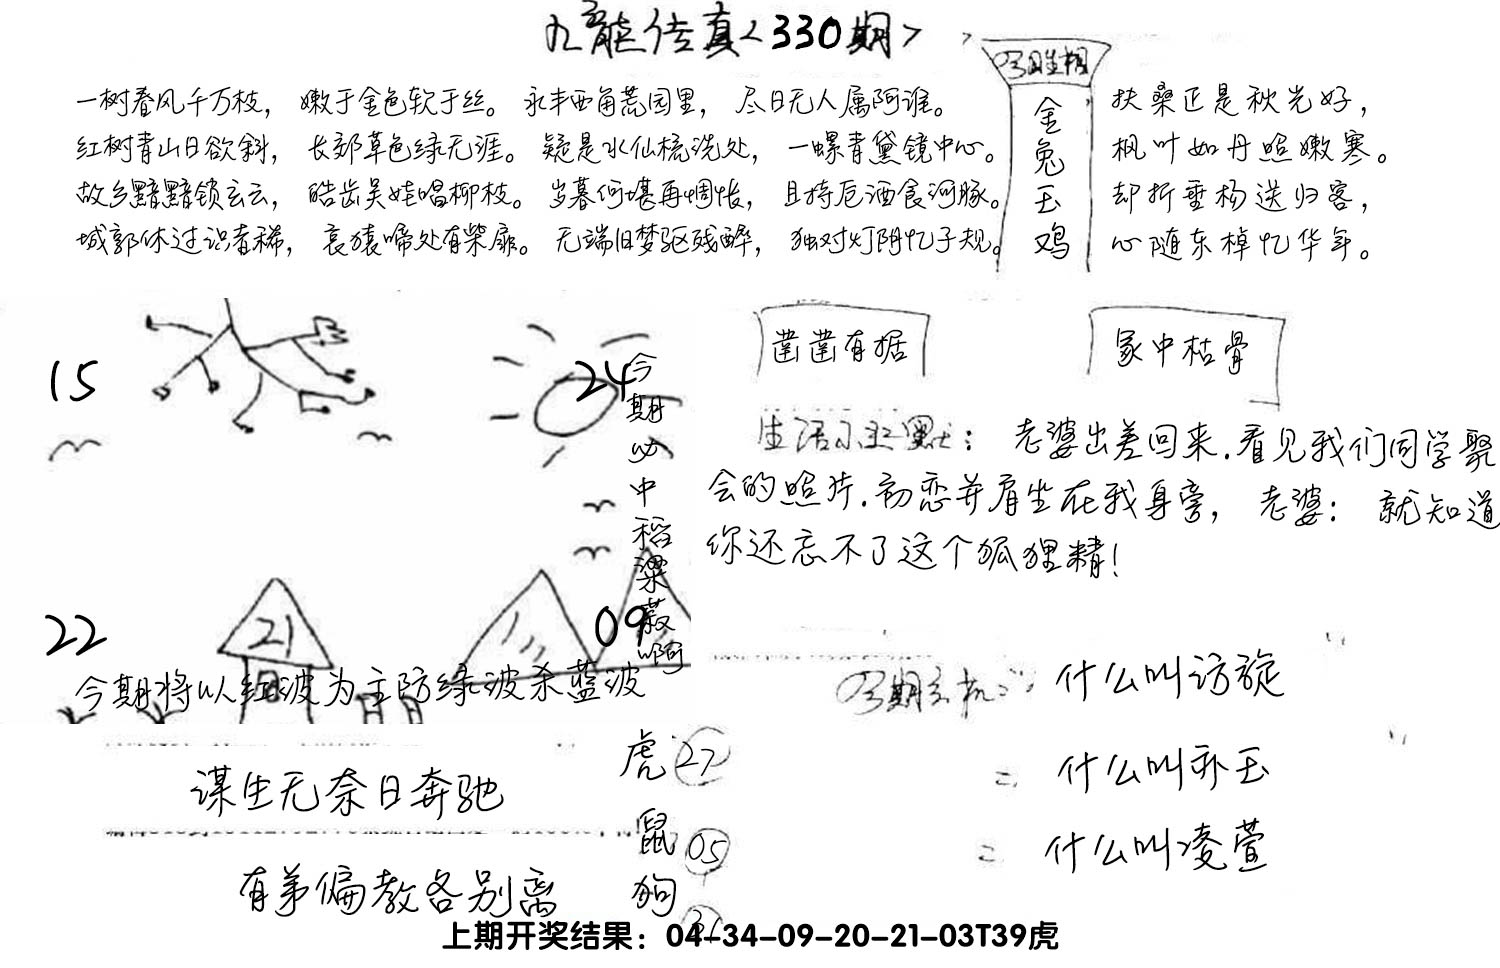 九龙传真<330期>
一树春风千万枝，嫩于金色软于丝。永丰西角荒园里，尽日无人属阿谁。
红树青山日欲斜，长郊草色绿无涯。疑是水仙梳洗处，一螺青黛镜中心。
故乡黯黯锁玄云，皓齿吴娃唱柳枝。岁暮何堪再惆怅，且持卮酒食河豚。
城郭休过识者稀，哀猿啼处有柴扉。无端旧梦驱残醉，独对灯阴忆子规。
金兔玉鸡
扶桑正是秋光好，
枫叶如丹照嫩寒。
却折垂杨送归客，
心随东棹忆华年。
15
24
22
21
09
今期必中稻粱菽啊
今期将以红波为主防绿波杀蓝波
凿凿有据
冢中枯骨
生活小幽默：老婆出差回来.看见我们同学聚
会的照片.初恋并肩坐在我身旁，老婆：就知道
你还忘不了这个狐狸精！
什么叫访旋
= 什么叫卦玉
= 什么叫凌萱
谋生无奈日奔驰
有弟偏教各别离
虎 27
鼠 05
狗 31
上期开奖结果：04-34-09-20-21-03T39虎